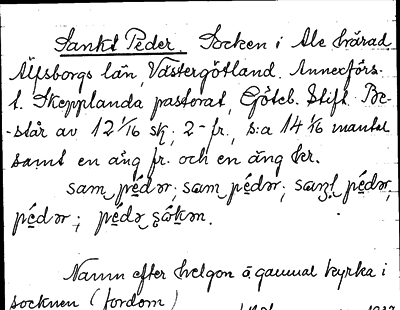 Sankt Peder. Socken i Ale härad
Älfsborgs län, Västergötland. Annexförs.
t. Skepplanda pastorat, Göteb. Stift. Be-
-står av 12 1/16 sk; 2 - fr., s:a 14 1/16 mantal
samt en äng fr. och en äng kr.
sam pédər; sam pédər; saŋt pédər,
pédər; pédə sókən.
Namn efter helgon å gammal kyrka i
socknen (fordom)